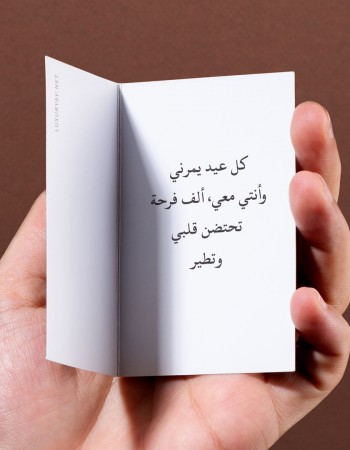 LUXURYBY.NET
كل عيد يمرني
وأنتي معي، ألف فرحة
تحتضن قلبي
وتطير